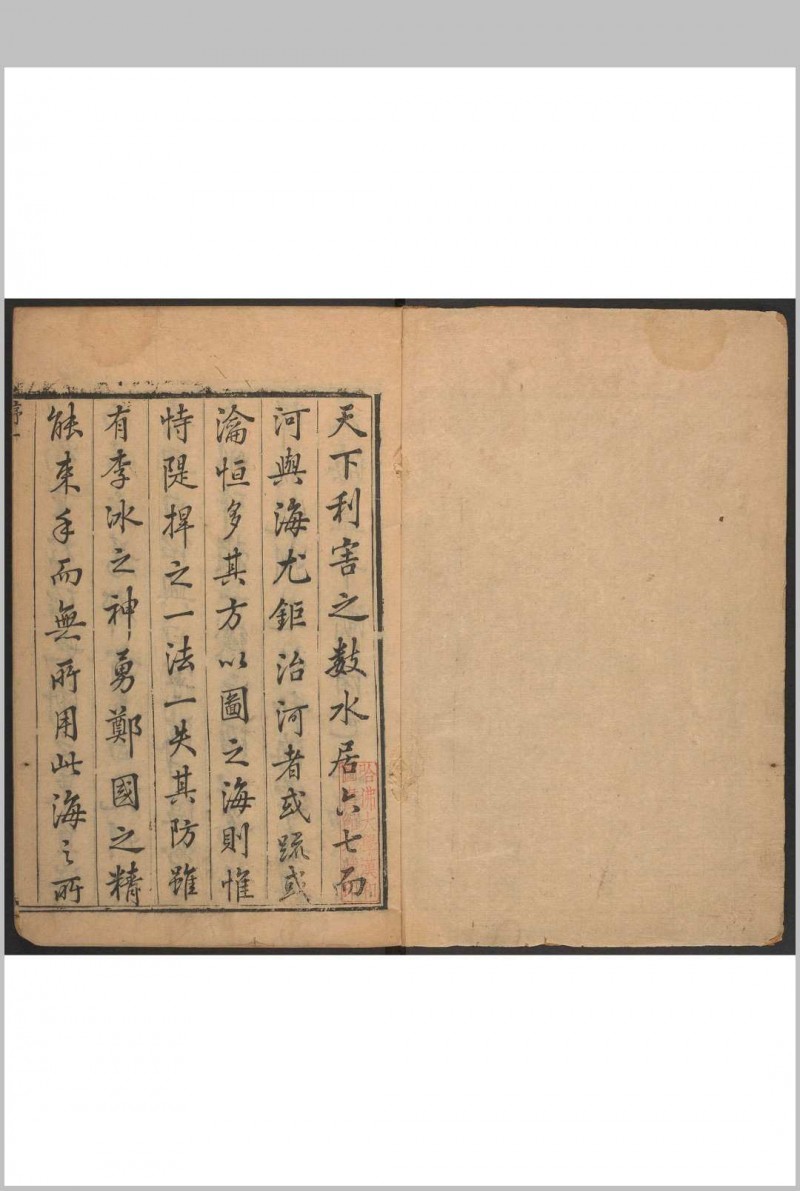 天下利害之數水居六七而
河與海尤鉅治河者或疏或
瀹恒多其方以圖之海則惟
恃隄捍之一法一失其防雖
有李冰之神勇鄭國之精
能束手而無所用此海之所
序一